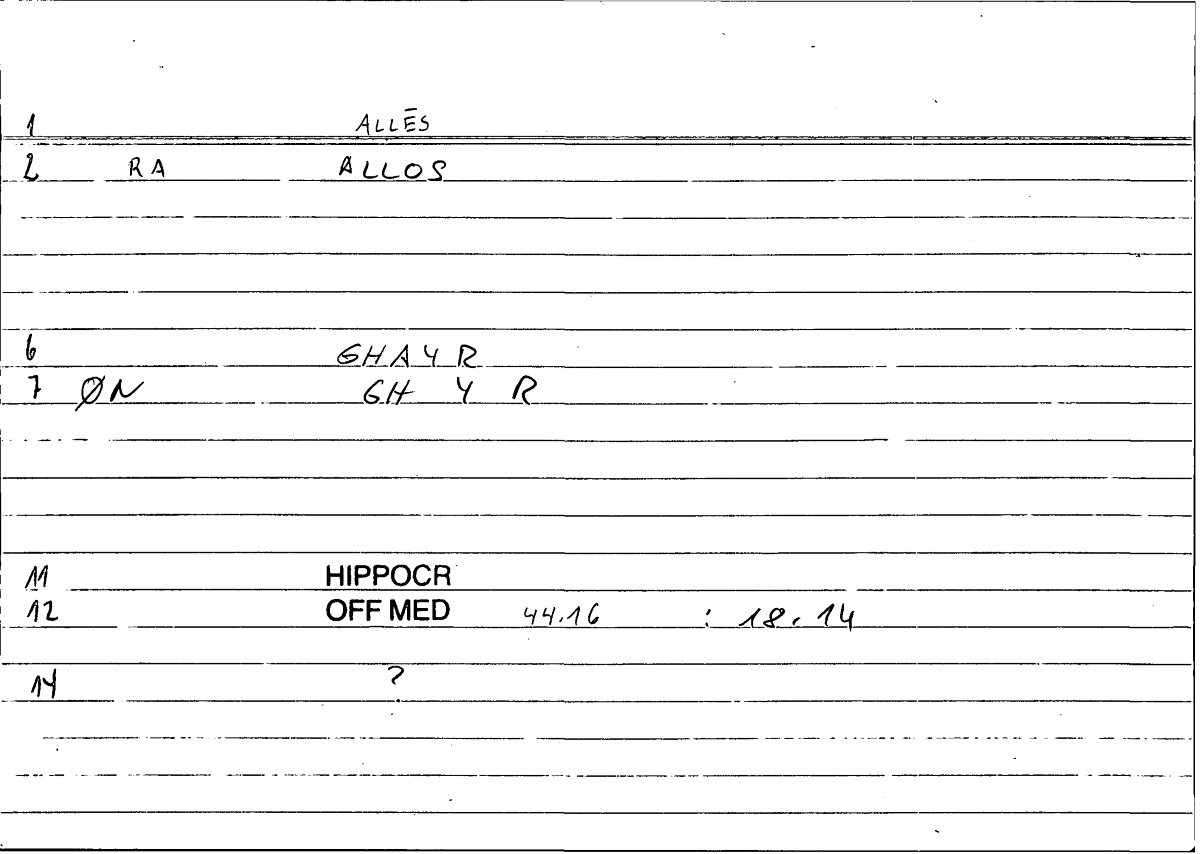 1 ALLĒS
2 RA ALLOS
6 GHAYR
7 ØN GH Y R
11 HIPPOCR
12 OFF MED 44.16 : 18.14
14 ?